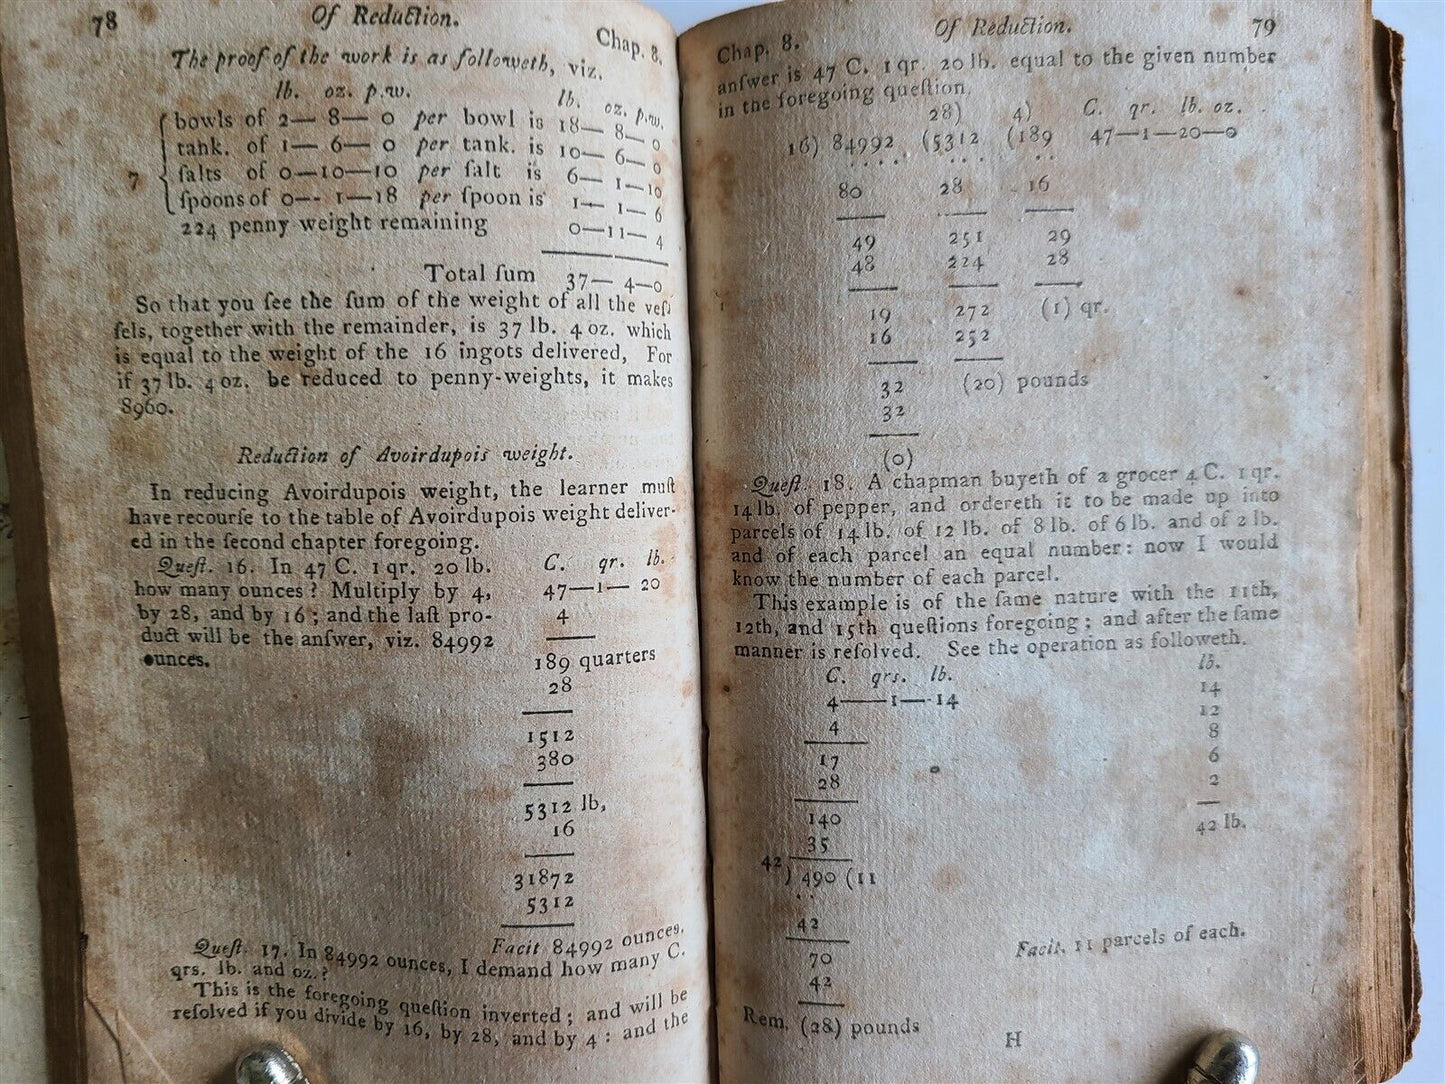 78 Of Reduction. Chap. 8.
The proof of the work is as followeth, viz.
lb. oz. p.w. lb. oz. p.w.
bowls of 2— 8— 0 per bowl is 18— 8— 0
tank. of 1— 6— 0 per tank. is 10— 6— 0
7 { ſalts of 0—10—10 per ſalt is 6— 1—10
ſpoons of 0-- 1—18 per ſpoon is 1— 1— 6
224 penny weight remaining 0—11— 4
Total ſum 37— 4—0
So that you ſee the ſum of the weight of all the veſ-
ſels, together with the remainder, is 37 lb. 4 oz. which
is equal to the weight of the 16 ingots delivered, For
if 37 lb. 4 oz. be reduced to penny-weights, it makes
8960.
Reduction of Avoirdupois weight.
In reducing Avoirdupois weight, the learner muſt
have recourſe to the table of Avoirdupois weight deliver-
ed in the ſecond chapter foregoing.
Queſt. 16. In 47 C. 1 qr. 20 lb.
how many ounces? Multiply by 4,
by 28, and by 16; and the laſt pro-
duct will be the anſwer, viz. 84992
ounces.
C. qr. lb.
47—1— 20
4
189 quarters
28
1512
380
5312 lb,
16
31872
5312
Facit 84992 ounces.
Queſt. 17. In 84992 ounces, I demand how many C.
qrs. lb. and oz.?
This is the foregoing queſtion inverted; and will be
reſolved if you divide by 16, by 28, and by 4: and the
Chap. 8. Of Reduction. 79
anſwer is 47 C. 1 qr. 20 lb. equal to the given number
in the foregoing queſtion.
28) 4) C. qr. lb. oz.
16) 84992 (5312 (189 47—1—20—0
80 28 16
49 251 29
48 224 28
19 272 (1) qr.
16 252
32 (20) pounds
32
(0)
Queſt. 18. A chapman buyeth of a grocer 4 C. 1 qr.
14 lb. of pepper, and ordereth it to be made up into
parcels of 14 lb. of 12 lb. of 8 lb. of 6 lb. and of 2 lb.
and of each parcel an equal number: now I would
know the number of each parcel.
This example is of the ſame nature with the 11th,
12th, and 15th queſtions foregoing; and after the ſame
manner is reſolved. See the operation as followeth.
C. qrs. lb.
4——1—-14
4
17
28
140
35
42) 490 (11
42
70
42
Rem. (28) pounds
lb.
14
12
8
6
2
42 lb.
Facit. 11 parcels of each.
H